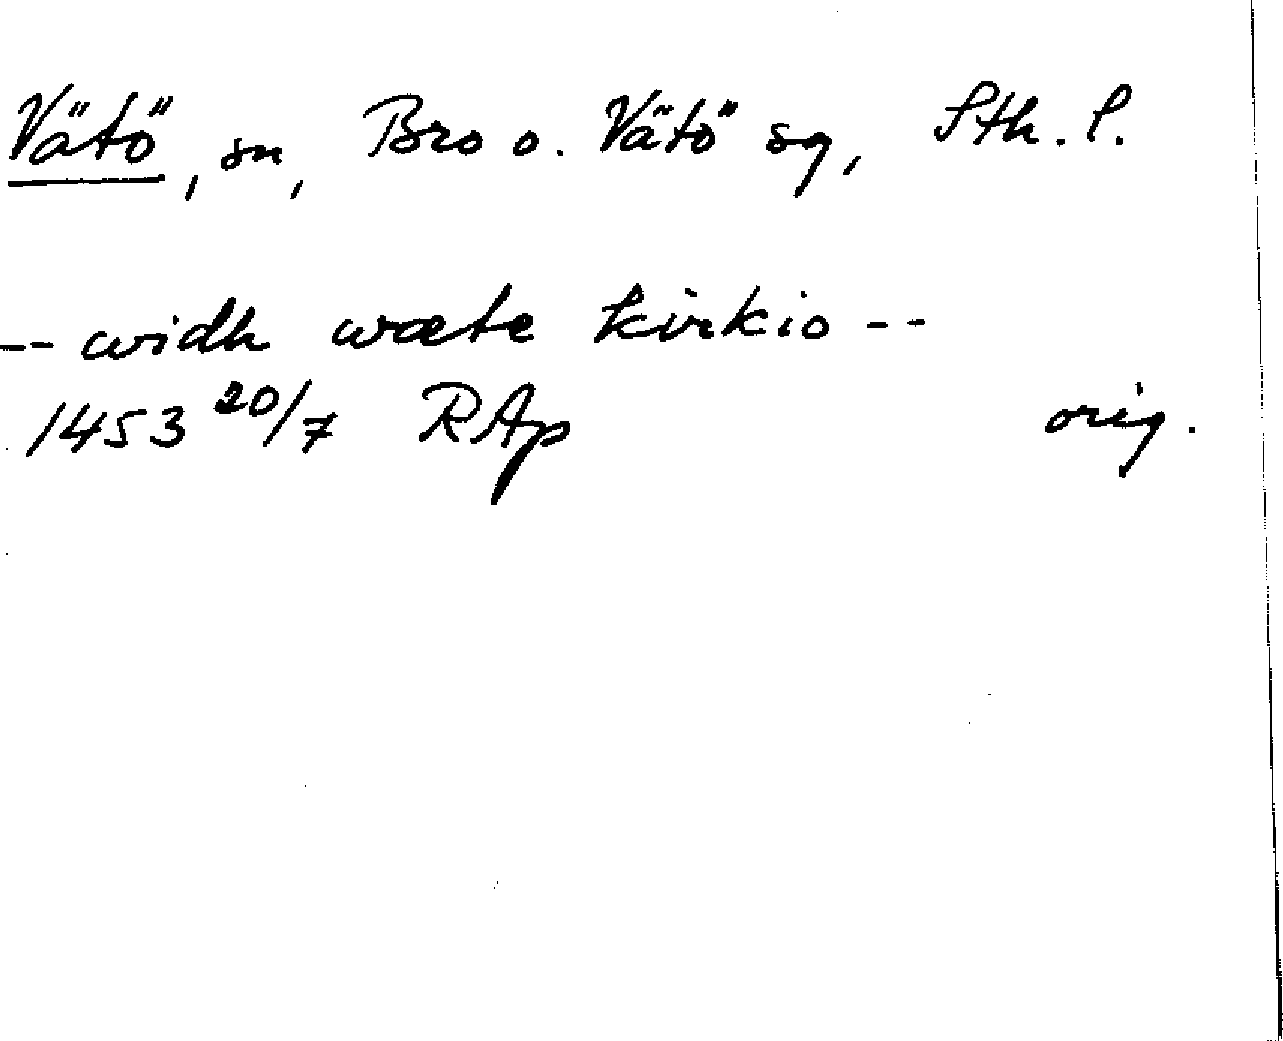 Vätö, sn, Bro o. Vätö sg, Sth. l.
-- widh wæte kirkio --
1453 20/7 RAp orig.